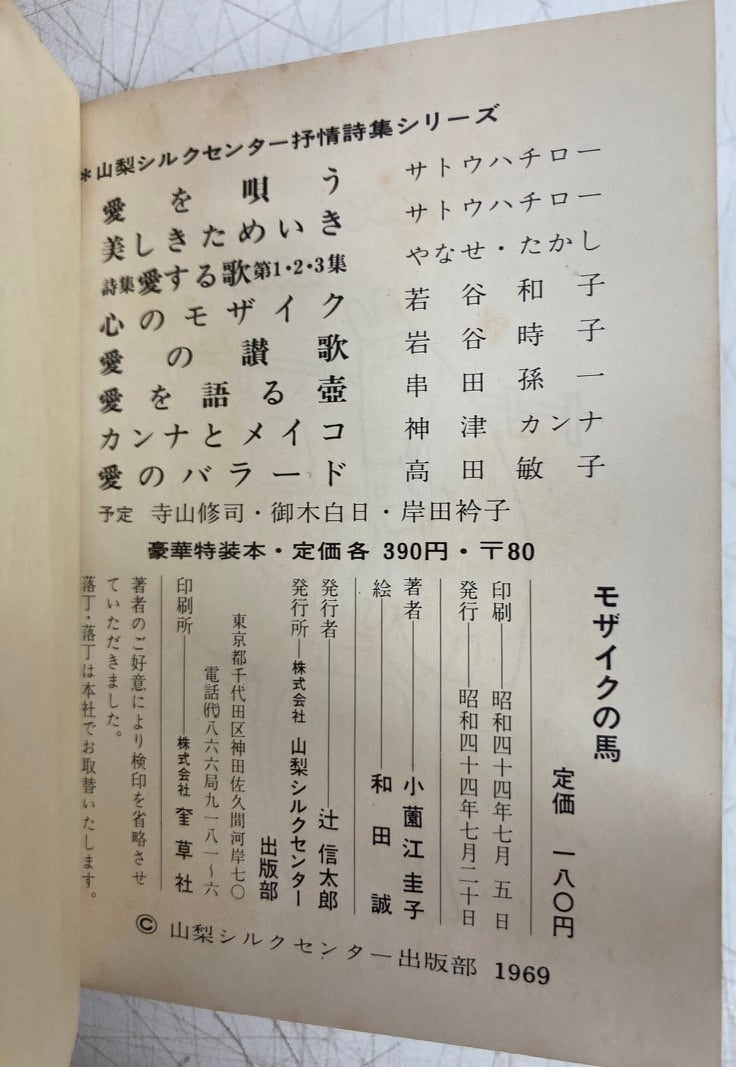 *山梨シルクセンター抒情詩集シリーズ
愛を唄う サトウハチロー
美しきためいき サトウハチロー
詩集愛する歌第1・2・3集 やなせ・たかし
心のモザイク 若谷和子
愛の讃歌 岩谷時子
愛を語る壺 串田孫一
カンナとメイコ 神津カンナ
愛のバラード 高田敏子
予定 寺山修司・御木白日・岸田衿子
豪華特装本・定価各 390円・〒80
モザイクの馬
定価 一八〇円
印刷――昭和四十四年七月 五 日
発行――昭和四十四年七月二十日
著者――小薗江圭子
絵――和田 誠
発行者――辻 信太郎
発行所――株式会社 山梨シルクセンター
出版部
東京都千代田区神田佐久間河岸七〇
電話㈹八六六局九一八一〜六
印刷所――株式会社 奎草社
著者のご好意により検印を省略させ
ていただきました。
落丁・落丁は本社でお取替いたします。
© 山梨シルクセンター出版部 1969